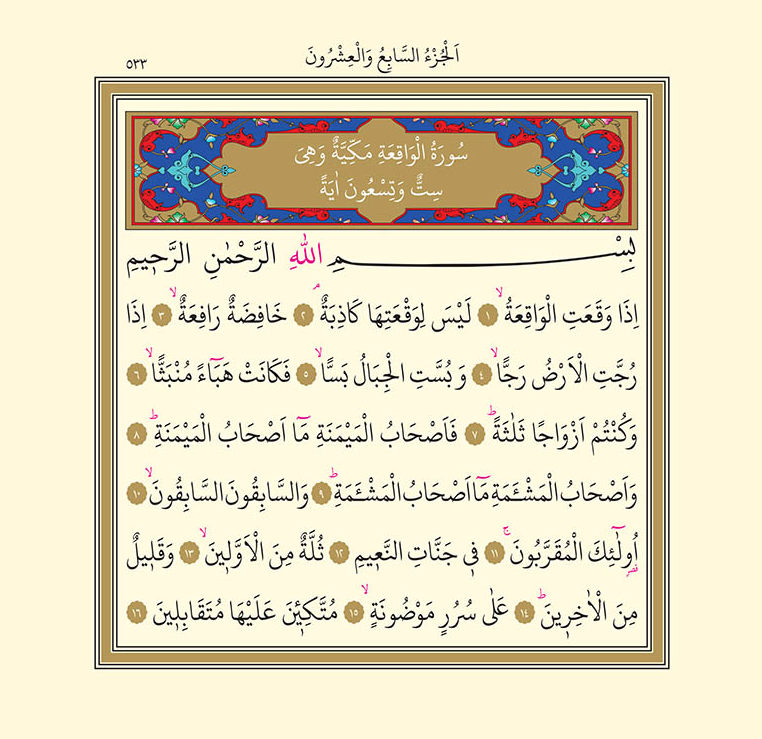 اَلْجُزْءُ السَّابِعُ وَالْعِشْرُونَ
٥٣٣
سُورَةُ الْوَاقِعَةِ مَكِّيَّةٌ وَهِيَ
سِتٌّ وَتِسْعُونَ اٰيَةً
بِسْمِ اللّٰهِ الرَّحْمٰنِ الرَّحٖيمِ
اِذَا وَقَعَتِ الْوَاقِعَةُۙ ﴿١﴾ لَيْسَ لِوَقْعَتِهَا كَاذِبَةٌۢ ﴿٢﴾ خَافِضَةٌ رَافِعَةٌۙ ﴿٣﴾ اِذَا
رُجَّتِ الْاَرْضُ رَجًّاۙ ﴿٤﴾ وَبُسَّتِ الْجِبَالُ بَسًّاۙ ﴿٥﴾ فَكَانَتْ هَبَٓاءً مُنْبَثًّاۙ ﴿٦﴾
وَكُنْتُمْ اَزْوَاجًا ثَلٰثَةًؕ ﴿٧﴾ فَاَصْحَابُ الْمَيْمَنَةِ مَٓا اَصْحَابُ الْمَيْمَنَةِؕ ﴿٨﴾
وَاَصْحَابُ الْمَشْـَٔمَةِ مَٓا اَصْحَابُ الْمَشْـَٔمَةِؕ ﴿٩﴾ وَالسَّابِقُونَ السَّابِقُونَۙ ﴿١٠﴾
اُو۬لٰٓئِكَ الْمُقَرَّبُونَۚ ﴿١١﴾ فٖي جَنَّاتِ النَّعٖيمِ ﴿١٢﴾ ثُلَّةٌ مِنَ الْاَوَّلٖينَۙ ﴿١٣﴾ وَقَلٖيلٌ
مِنَ الْاٰخِرٖينَؕ ﴿١٤﴾ عَلٰى سُرُرٍ مَوْضُونَةٍۙ ﴿١٥﴾ مُتَّكِـٖٔينَ عَلَيْهَا مُتَقَابِلٖينَ ﴿١٦﴾